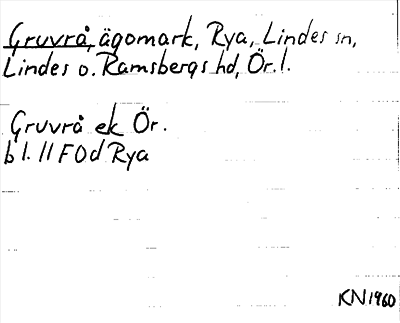 Gruvrå, ägomark, Rya, Lindes sn,
Lindes o. Ramsbergs hd, Ör. l.
Gruvrå ek Ör.
b l. 11 F0d Rya
KN 1960